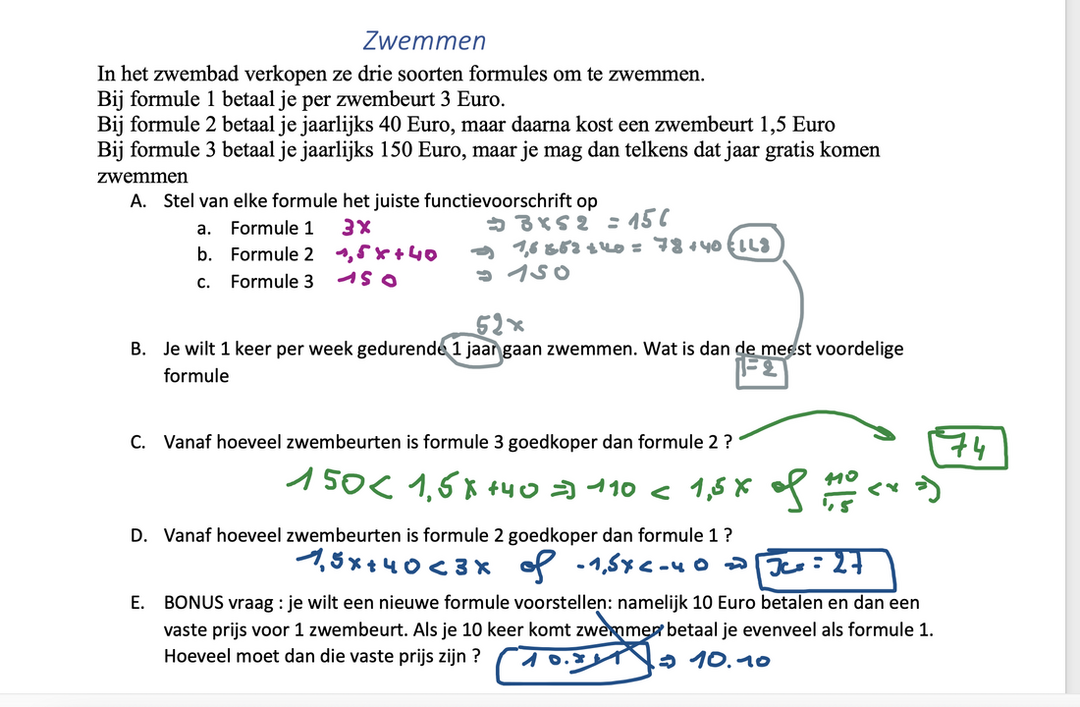 Zwemmen
In het zwembad verkopen ze drie soorten formules om te zwemmen.
Bij formule 1 betaal je per zwembeurt 3 Euro.
Bij formule 2 betaal je jaarlijks 40 Euro, maar daarna kost een zwembeurt 1,5 Euro
Bij formule 3 betaal je jaarlijks 150 Euro, maar je mag dan telkens dat jaar gratis komen
zwemmen
A. Stel van elke formule het juiste functievoorschrift op
a. Formule 1 3x ⇒ 3x52 = 156
b. Formule 2 1,5x+40 ⇒ 1,5x52+40 = 78+40 = 118
c. Formule 3 150 ⇒ 150
52x
B. Je wilt 1 keer per week gedurende 1 jaar gaan zwemmen. Wat is dan de meest voordelige
formule F2
C. Vanaf hoeveel zwembeurten is formule 3 goedkoper dan formule 2 ? 74
150 < 1,5x +40 ⇒ 110 < 1,5x of 110/1,5 < x ⇒
D. Vanaf hoeveel zwembeurten is formule 2 goedkoper dan formule 1 ?
1,5x+40 < 3x of -1,5x < -40 ⇒ x = 27
E. BONUS vraag : je wilt een nieuwe formule voorstellen: namelijk 10 Euro betalen en dan een
vaste prijs voor 1 zwembeurt. Als je 10 keer komt zwemmen betaal je evenveel als formule 1.
Hoeveel moet dan die vaste prijs zijn ? ⇒ 10.10